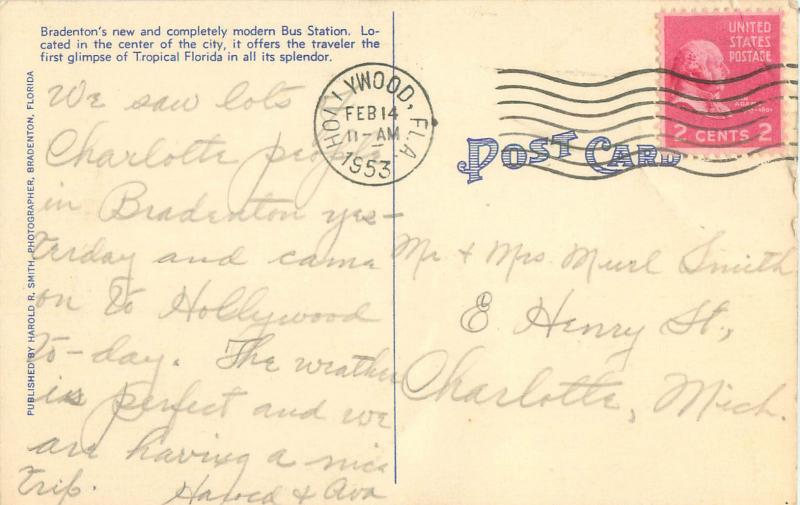 Bradenton's new and completely modern Bus Station. Lo-
cated in the center of the city, it offers the traveler the
first glimpse of Tropical Florida in all its splendor.
PUBLISHED BY HAROLD R. SMITH, PHOTOGRAPHER, BRADENTON, FLORIDA
We saw lots
Charlotte people
in Bradenton yes-
terday and came
on to Hollywood
to-day. The weather
is perfect and we
are having a nice
trip. Harold & Ava
HOLLYWOOD, FLA.
FEB 14
11-AM
1953
UNITED
STATES
POSTAGE
JOHN
ADAMS
2 CENTS 2
POST CARD
Mr & Mrs Murl Smith
E Henry St.,
Charlotte, Mich.